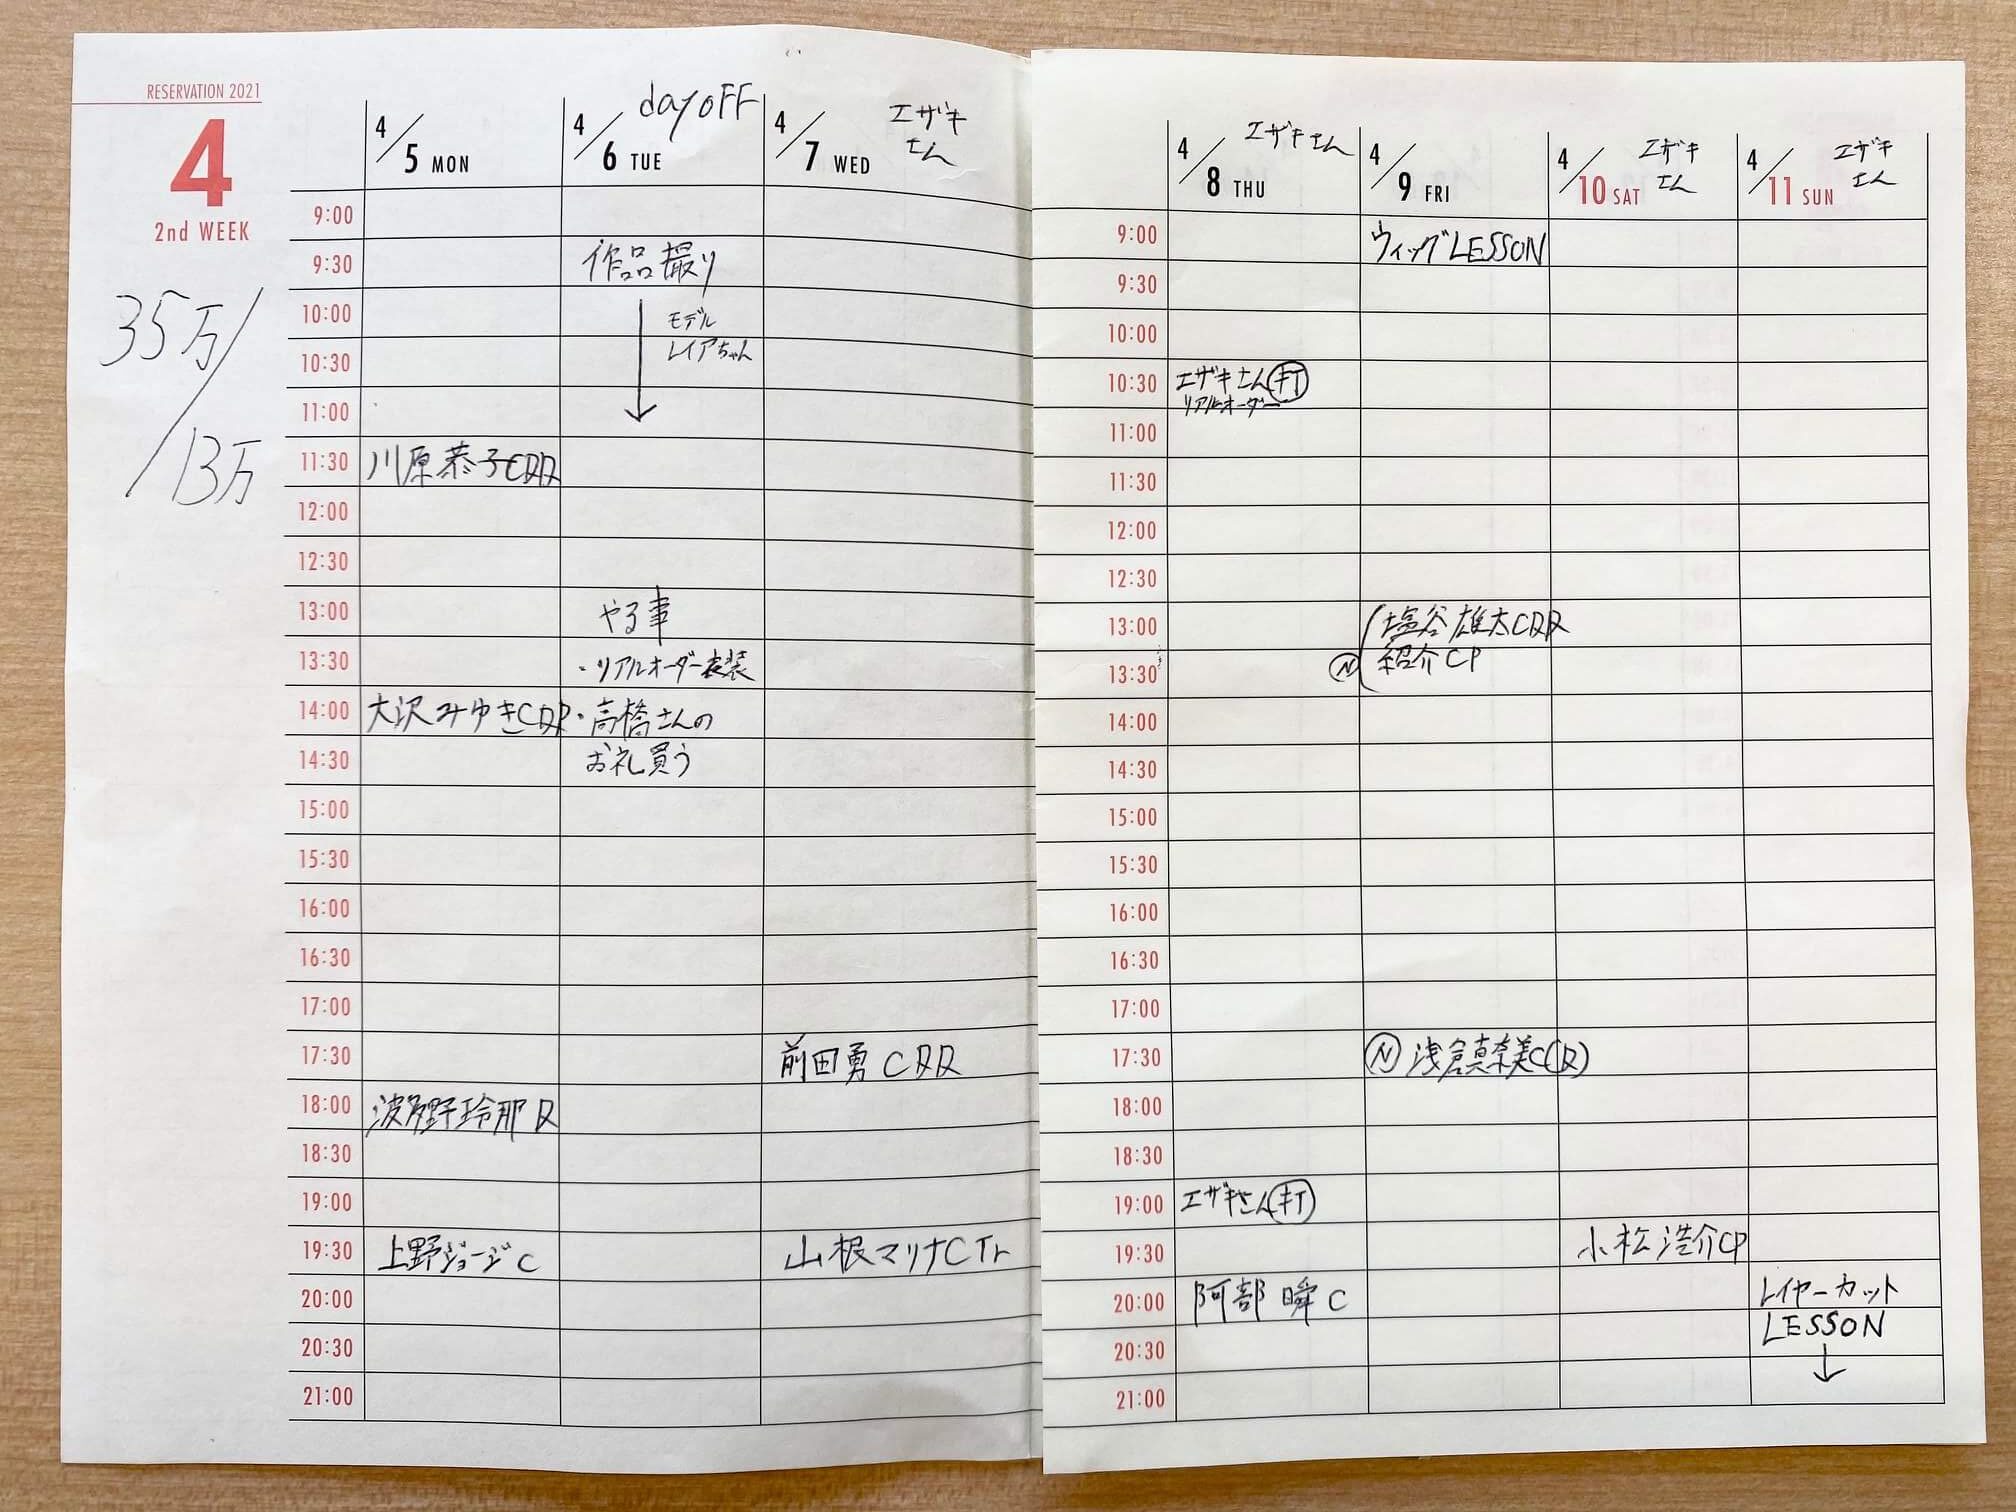 RESERVATION 2021
4
2nd WEEK
35万/
13万
4/5 MON
4/6 TUE
dayOFF
4/7 WED
エザキ
さん
9:00
9:30
10:00
10:30
11:00
11:30
12:00
12:30
13:00
13:30
14:00
14:30
15:00
15:30
16:00
16:30
17:00
17:30
18:00
18:30
19:00
19:30
20:00
20:30
21:00
川原恭子C
大沢みゆきC
波多野玲那
上野ジョージC
作品撮り
モデル
レイアちゃん
やる事
・リアルオーダー
・高橋さんの
お礼買う
前田勇C
山根マリナCTr
4/8 THU
エザキさん
4/9 FRI
4/10 SAT
エザキ
さん
4/11 SUN
エザキ
さん
9:00
9:30
10:00
10:30
11:00
11:30
12:00
12:30
13:00
13:30
14:00
14:30
15:00
15:30
16:00
16:30
17:00
17:30
18:00
18:30
19:00
19:30
20:00
20:30
21:00
エザキさん打
リアルオーダー
エザキさん打
阿部 瞬C
ウィッグLESSON
塩谷雄太C
N 紹介CP
N 浅倉真奈美C
小松浩介CP
レイヤーカット
LESSON